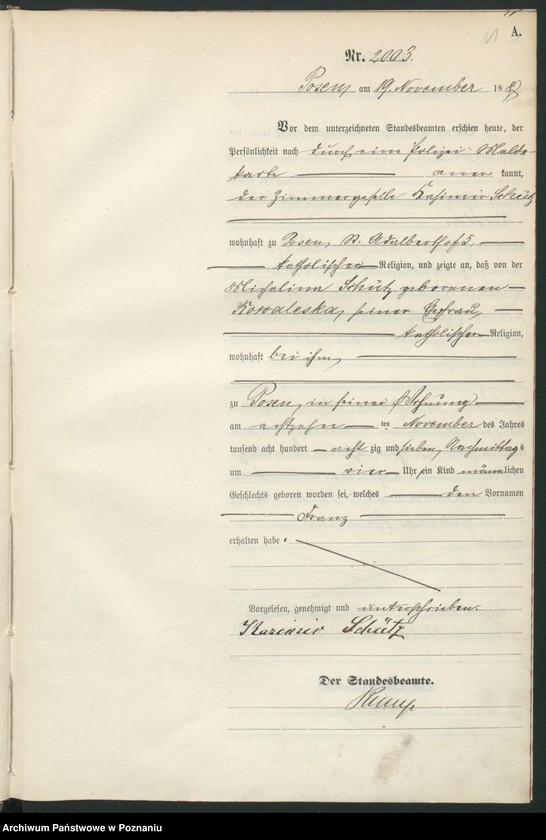 A.
Nr. 2003.
Posen am 19. November 1887
Vor dem unterzeichneten Standesbeamten erschien heute, der
Persönlichkeit nach durch eine Polizei-Melde-
karte anerkannt,
der Zimmergeselle Kasimir Schütz
wohnhaft zu Posen, St. Adalberthof 5,
katholischer Religion, und zeigte an, daß von der
Michalina Schütz geborenen
Kowaleska, seiner Ehefrau,
katholischer Religion,
wohnhaft bei ihm,
zu Posen, in seiner Wohnung
am achtzehnten November des Jahres
tausend acht hundert achtzig und sieben, Nachmittags
um vier Uhr ein Kind männlichen
Geschlechts geboren worden sei, welches den Vornamen
Franz
erhalten habe.
Vorgelesen, genehmigt und unterschrieben.
Kazimir Schütz
Der Standesbeamte.
Archiwum Państwowe w Poznaniu